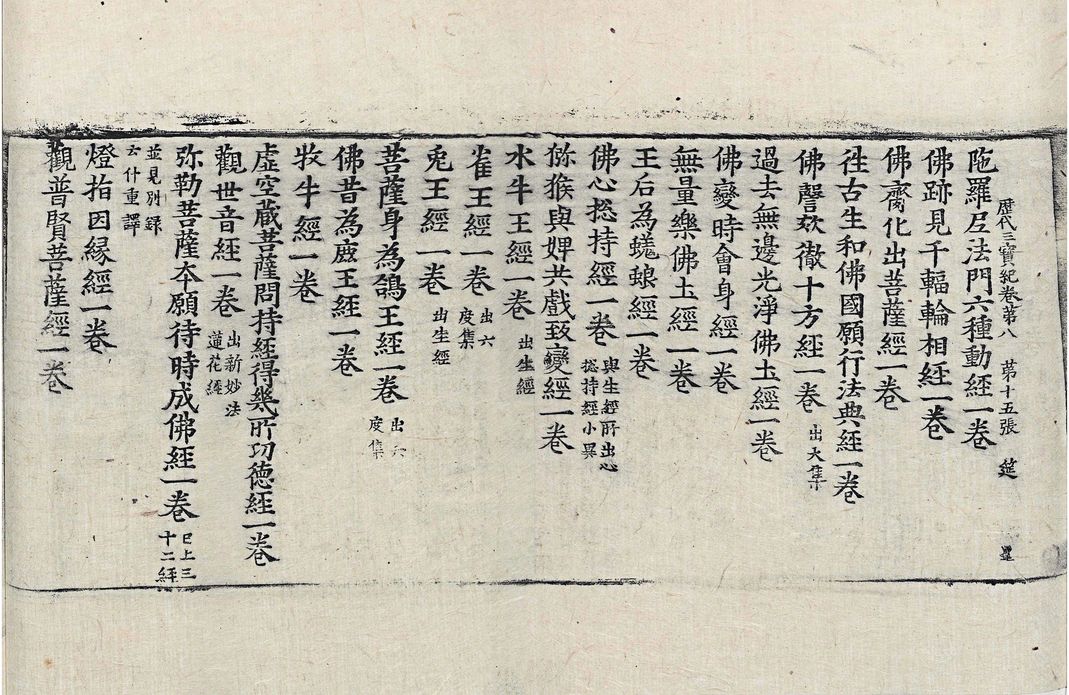 歷代三寶紀卷第八 第十五張 筵
陁羅尼法門六種動經一卷
佛跡見千輻輪相經一卷
佛齋化出菩薩經一卷
往古生和佛國願行法典經一卷
佛謦欬徹十方經一卷 出大集
過去無邊光淨佛土經一卷
佛變時會身經一卷
無量樂佛土經一卷
王后為蜣蜋經一卷
佛心捴持經一卷 與生經所出心捴持經小異
猕猴與婢共戲致變經一卷
水牛王經一卷 出生經
雀王經一卷 出六度集
兎王經一卷 出生經
菩薩身為鴿王經一卷 出六度集
佛昔為鹿王經一卷
牧牛經一卷
虛空藏菩薩問持經得幾所功德經一卷
觀世音經一卷 出新妙法蓮花經
弥勒菩薩本願待時成佛經一卷 已上三十二經
並見別錄云什重譯
燈指因縁經一卷
觀普賢菩薩經一卷